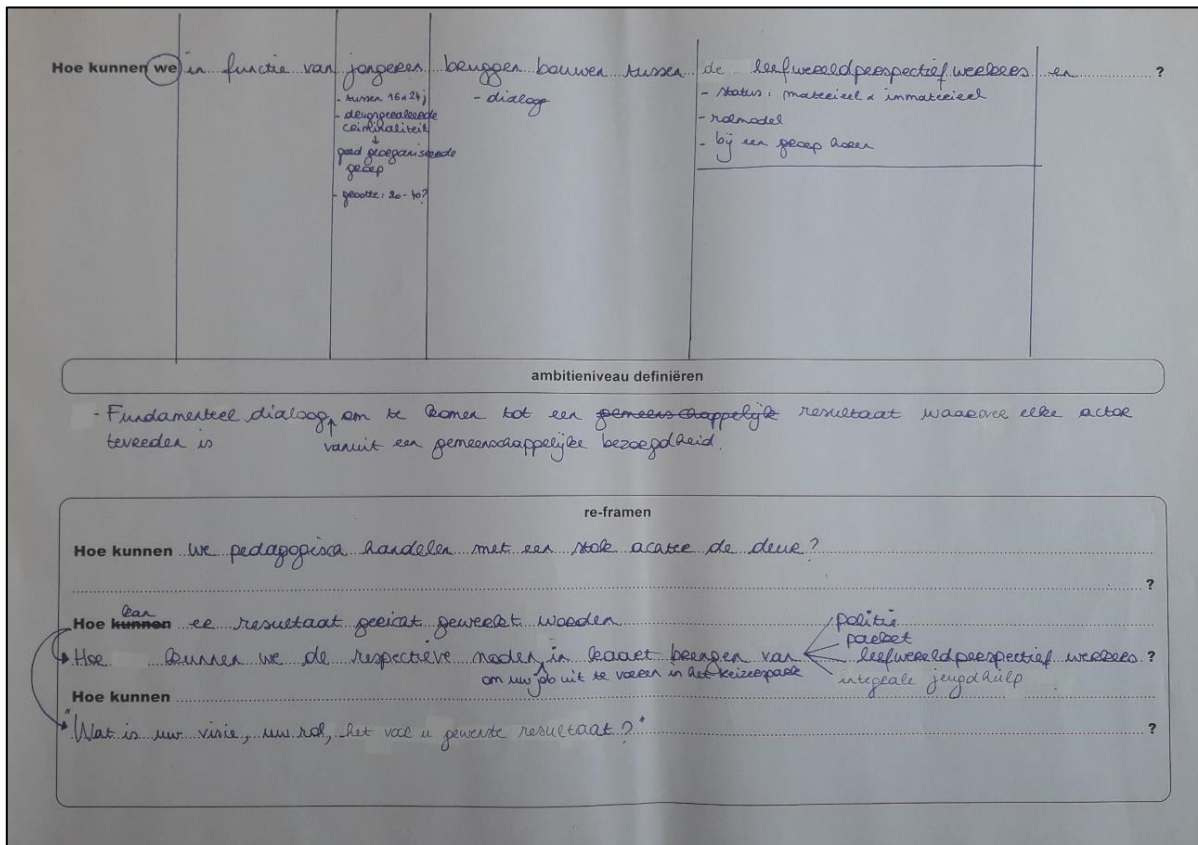 Hoe kunnen we in functie van jongeren bruggen bouwen tussen de leefwereldperspectief werkers en ?
- tussen 16 à 24j
- druggerelateerde
criminaliteit
↓
goed georganiseerde
groep
- grootte: 20-40?
- dialoog
- status: materieel & immaterieel
- rolmodel
- bij een groep horen
ambitieniveau definiëren
- Fundamenteel dialoog om te komen tot een gemeenschappelijk resultaat waarover elke actor
tevreden is vanuit een gemeenschappelijke bezorgdheid.
re-framen
Hoe kunnen we pedagogisch handelen met een stok achter de deur?
?
Hoe kunnen kan er resultaat gericht gewerkt worden
Hoe kunnen we de respectieve noden in kaart brengen van
om uw job uit te voeren in het keizerpark
politie
parket
leefwereldperspectief werkers ?
integrale jeugdhulp
Hoe kunnen
"Wat is uw visie, uw rol, het voor u gewenste resultaat?" ?